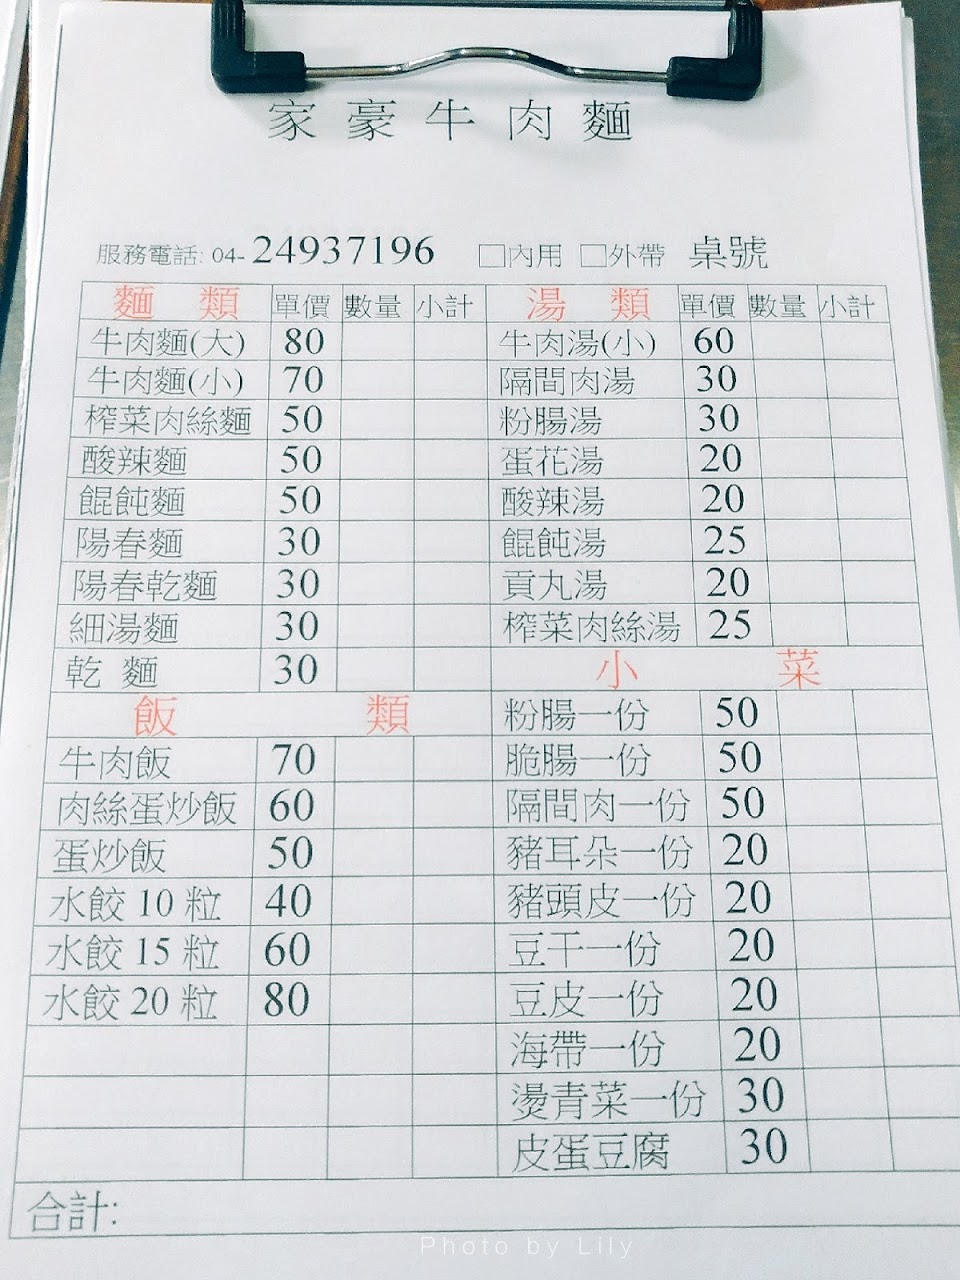 家豪牛肉麵
服務電話: 04-24937196 □內用 □外帶 桌號
麵 類 單價 數量 小計 湯 類 單價 數量 小計
牛肉麵(大) 80 牛肉湯(小) 60
牛肉麵(小) 70 隔間肉湯 30
榨菜肉絲麵 50 粉腸湯 30
酸辣麵 50 蛋花湯 20
餛飩麵 50 酸辣湯 20
陽春麵 30 餛飩湯 25
陽春乾麵 30 貢丸湯 20
細湯麵 30 榨菜肉絲湯 25
乾 麵 30 小 菜
飯 類 粉腸一份 50
牛肉飯 70 脆腸一份 50
肉絲蛋炒飯 60 隔間肉一份 50
蛋炒飯 50 豬耳朵一份 20
水餃 10 粒 40 豬頭皮一份 20
水餃 15 粒 60 豆干一份 20
水餃 20 粒 80 豆皮一份 20
海帶一份 20
燙青菜一份 30
皮蛋豆腐 30
合計:
Photo by Lily